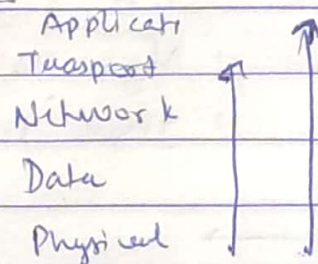 Applicati
Trasport
Network
Data
Physical